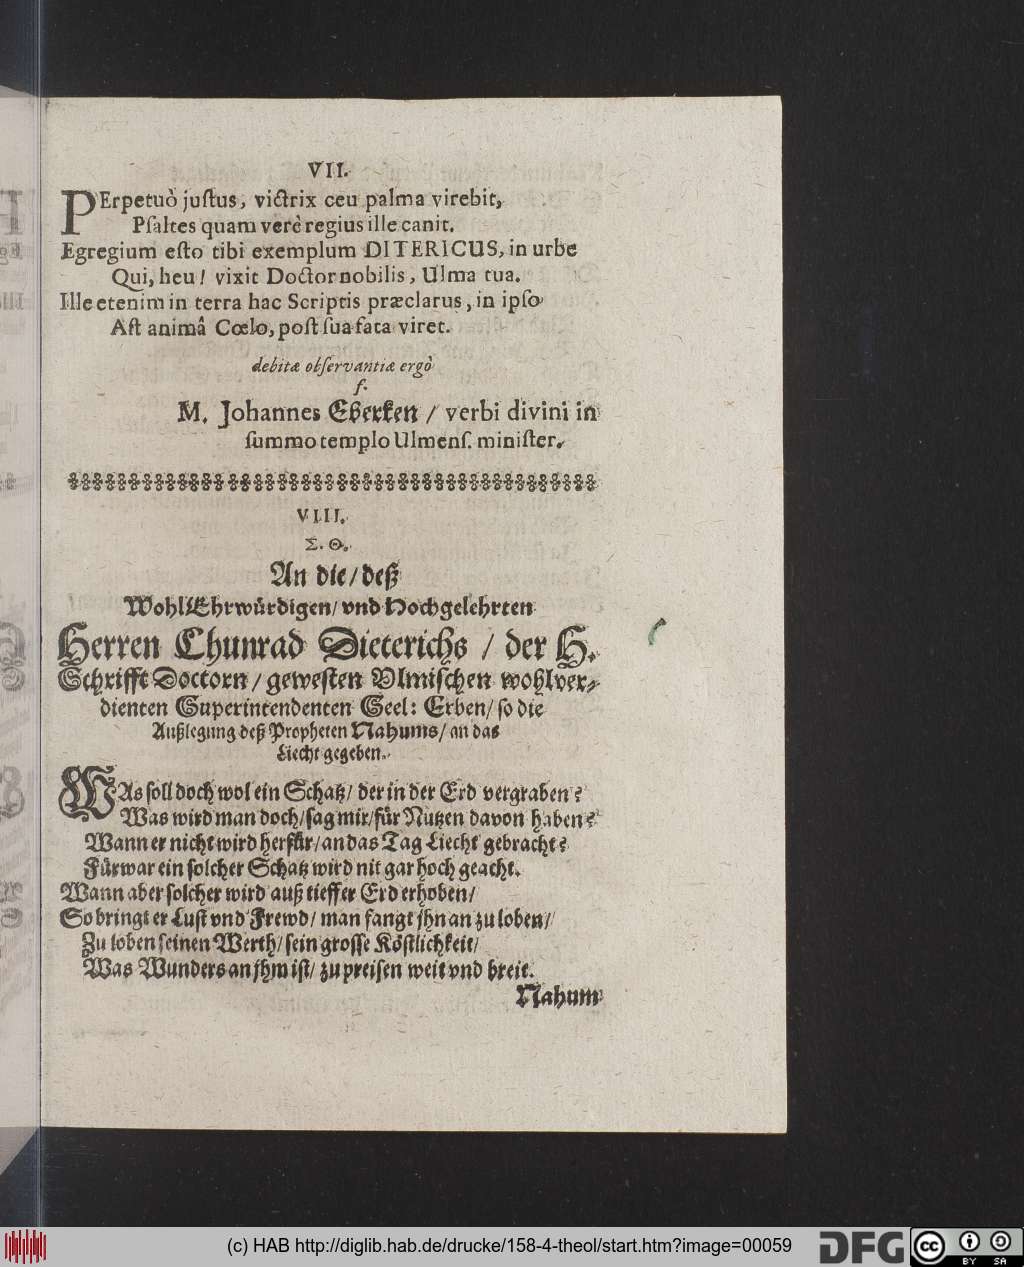 VII.
PErpetuò juſtus, victrix ceu palma virebit,
Pſaltes quam verè regius ille canit.
Egregium eſto tibi exemplum DITERICUS, in urbe
Qui, heu! vixit Doctor nobilis, Ulma tua.
Ille etenim in terra hac Scriptis præclarus, in ipſo
Aſt animâ Cœlo, poſt ſua fata viret.
debitæ obſervantiæ ergò
f.
M. Johannes Eberken / verbi divini in
ſummo templo Ulmenſ. miniſter.
VIII.
Σ. Θ.
An die / deß
WohlEhrwürdigen / vnd Hochgelehrten
Herren Chunrad Dieterichs / der H.
Schrifft Doctorn / geweſten Vlmiſchen wohlver-
dienten Superintendenten Seel: Erben / ſo die
Außlegung deß Propheten Nahums / an das
Liecht gegeben.
WAs ſoll doch wol ein Schatz / der in der Erd vergraben?
Was wird man doch / ſag mir / für Nutzen davon haben?
Wann er nicht wird herfür / an das Tag Liecht gebracht?
Fürwar ein ſolcher Schatz wird nit gar hoch geacht.
Wann aber ſolcher wird auß tieffer Erd erhoben /
So bringt er Luſt vnd Frewd / man fangt jhn an zu loben /
Zu loben ſeinen Werth / ſein groſſe Köſtlichkeit /
Was Wunders an jhm iſt / zu preiſen weit vnd breit.
Nahum
(c) HAB http://diglib.hab.de/drucke/158-4-theol/start.htm?image=00059
DFG
cc BY SA